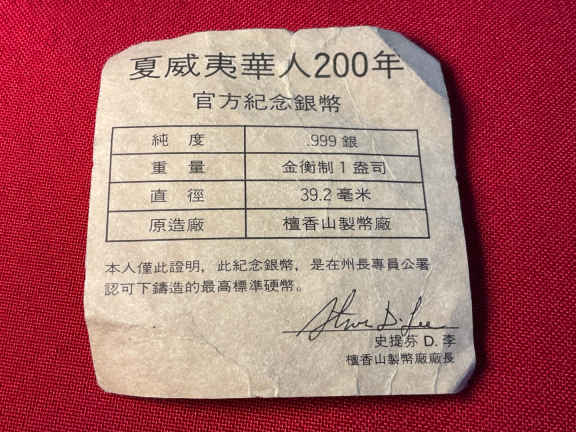 夏威夷華人200年
官方紀念銀幣
純 度 .999 銀
重 量 金衡制 1 盎司
直 徑 39.2 毫米
原造廠 檀香山製幣廠
本人僅此證明，此紀念銀幣，是在州長專員公署
認可下鑄造的最高標準硬幣。
Steve D. Lee
史提芬 D. 李
檀香山製幣廠廠長